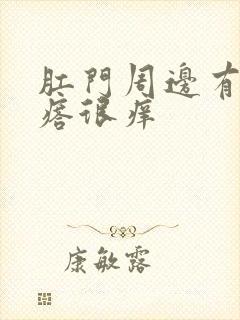 肛門周邊有
痞很痒
康敏露